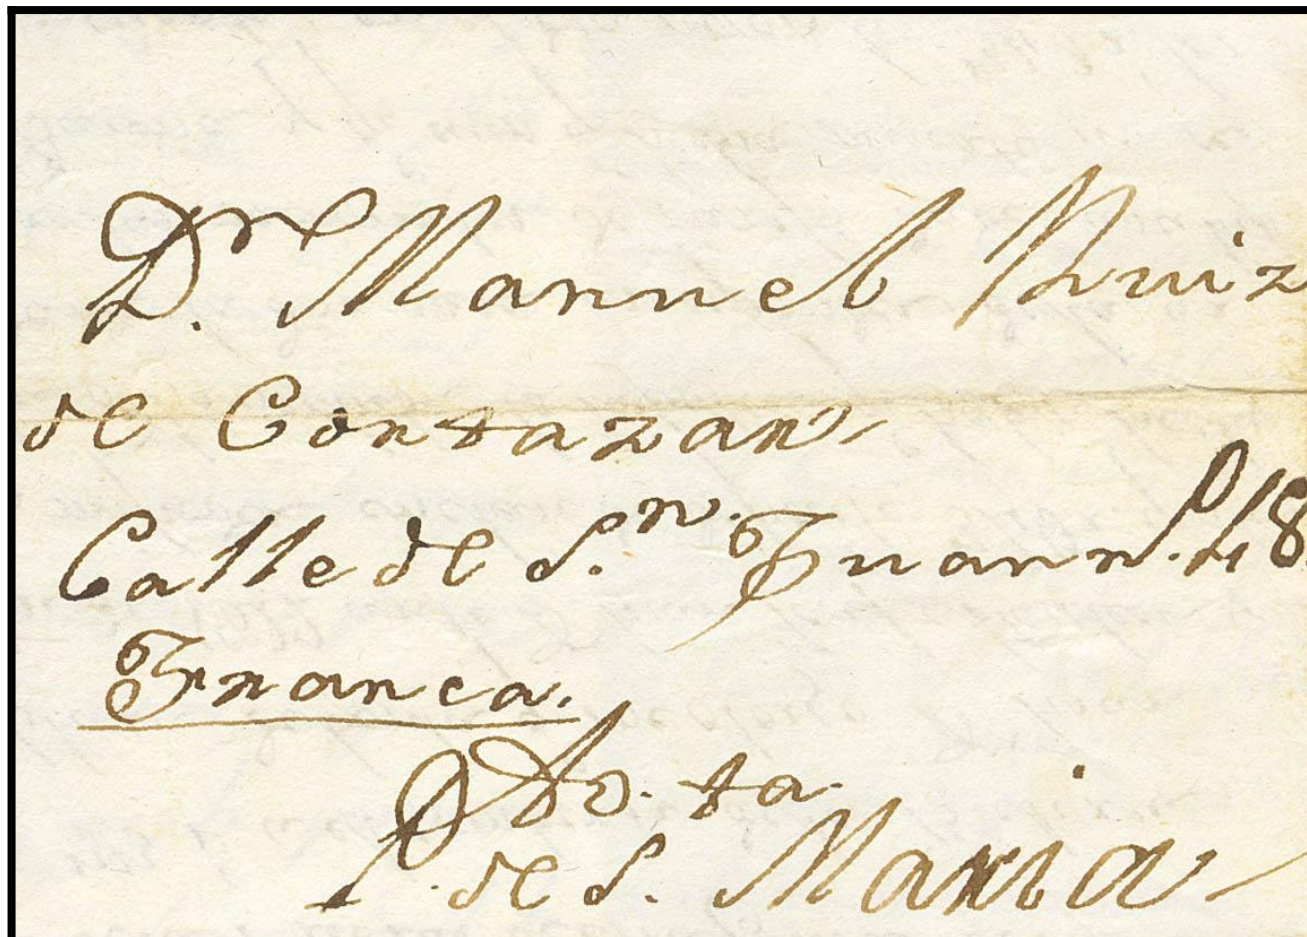 D.n Manuel Ruiz
de Cortazar
Calle de S.n Juan n.o 48.
Franca.
P.to de S.ta Maria